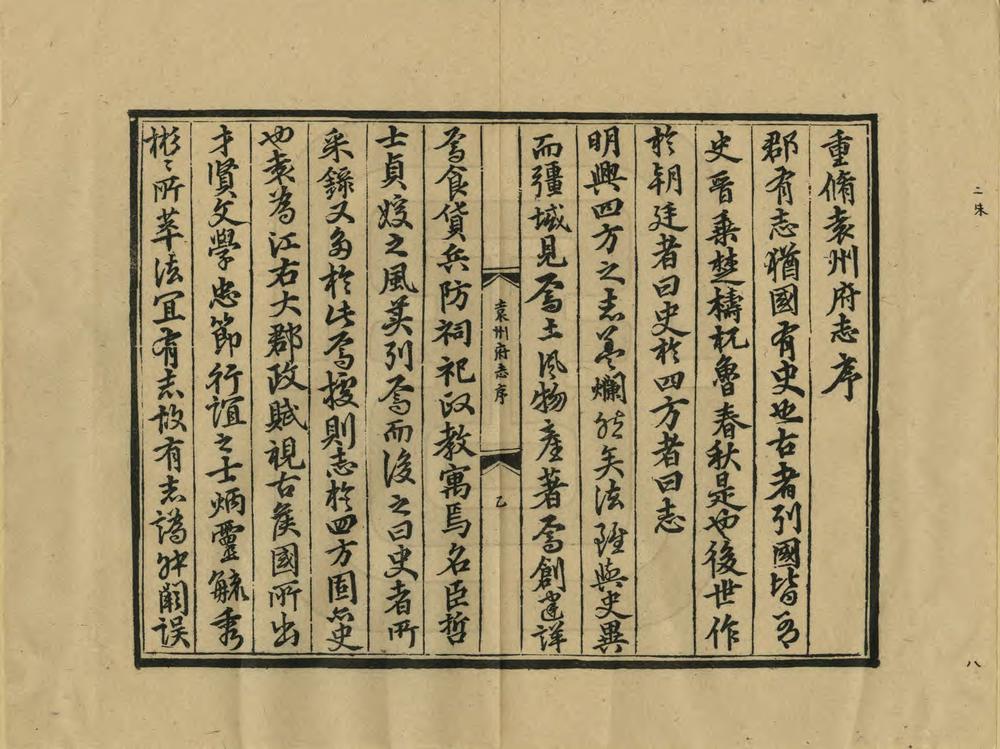 重脩袁州府志序
郡有志猶國有史也古者列國皆有
史晋乗楚檮杌魯春秋是也後世作
於朝廷者曰史於四方者曰志
明興四方之志葢爛然矣法雖與史異
而疆域見焉土風物產著焉創建詳
焉食貨兵防祠祀政教寓焉名臣哲
士貞媛之風美列焉而後之曰史者所
采錄又多於此焉授則志於四方固亦史
也袁為江右大郡政賦視古侯國所出
才賢文學忠節行誼之士炳靈毓秀
彬々所萃法宜有志故有志譌舛闕誤
袁州府志序
乙
二朱
八